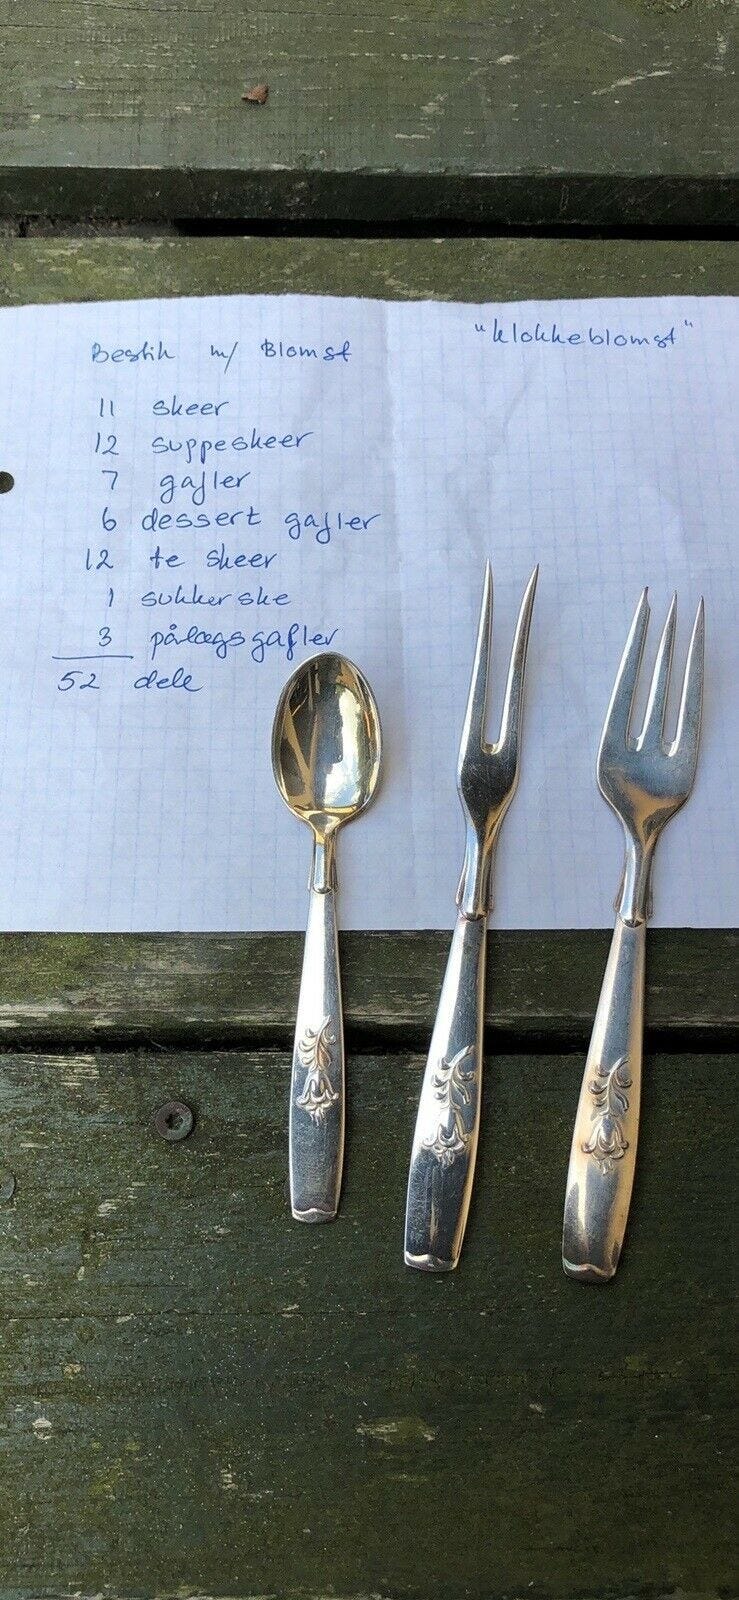 Bestik m/ Blomst
"klokkeblomst"
11 skeer
12 suppeskeer
7 gafler
6 dessert gafler
12 te skeer
1 sukker ske
3 pålægsgafler
52 dele